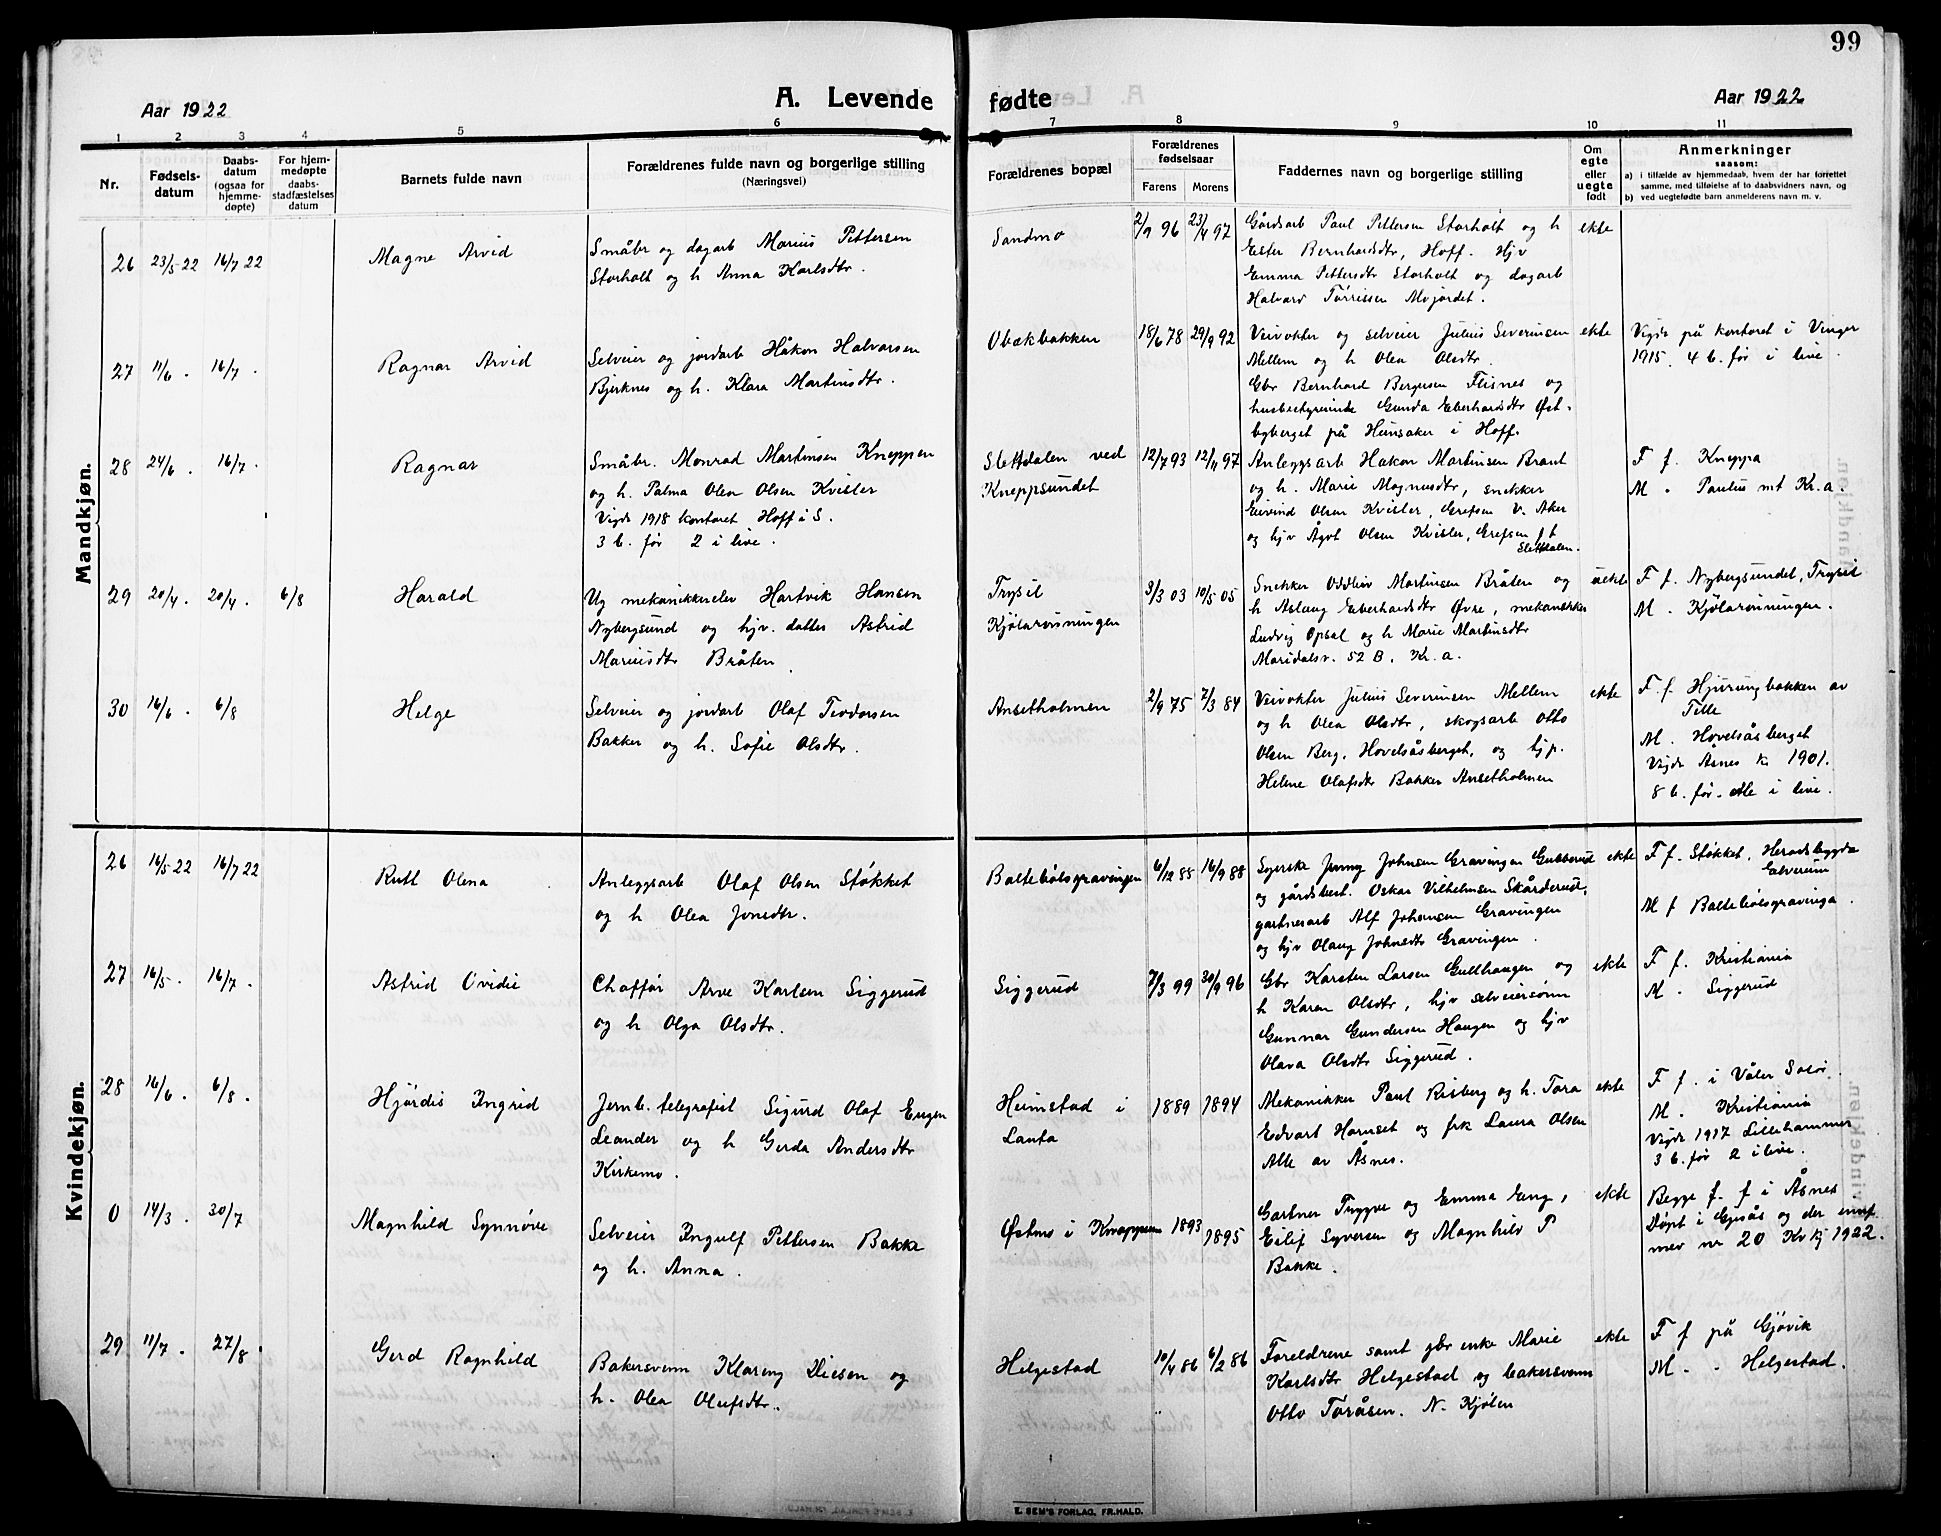 99
Aar 1922
A. Levende
fødte
Aar 1922
1 2 3 4 5 6
7 8 9 10 11
Nr.
Fødsels-
datum
Daabs-
datum
(ogsaa for
hjemme-
døpte)
For hjem-
medøpte
daabs-
stadfæstelses
datum
Barnets fulde navn
Forældrenes fulde navn og borgerlige stilling
(Næringsvei)
Forældrenes bopæl
Forældrenes
fødselsaar
Farens Morens
Faddernes navn og borgerlige stilling
Om
egte
eller
uegte
født
Anmerkninger
saasom:
a) i tilfælde av hjemmedaab, hvem der har forrettet
samme, med tilføielse af to daabsvidners navn, og
b) ved uegtefødte barn anmelderens navn m. v.
Mandkjøn.
26 23/5 22 16/7 22
Magne Arvid
Småbr og dagarb Marius Pettersen
Storholt og h Anna Karlsdtr.
Sandmo
2/9 96 23/4 97
Gårdsarb Paul Pettersen Storholt og h
Ester Bernhardsdtr, Hoff. Hjv
Emma Pettersdtr Storholt og dagarb
Halvard Tørrissen Mojordet.
ekte
27 11/6 . 16/7 .
Ragnar Arvid
Selveier og jordarb Håkon Halvorsen
Bjerknes og h. Klara Martinsdtr.
Obækbakken
18/6 78 29/9 92
Veivokter og selveier Julius Severinsen
Mellem og h Olea Olsdtr.
Gbr Bernhard Bergersen Flisnes og
husbestyrerinde Gunda Eberhardsdtr Øst-
byberget på Heinsaker i Hoff.
ekte
Vigde på kontoret i Vinger
1915. 4 b. før i live.
28 24/6 . 16/7 .
Ragnar
Småbr. Monrad Martinsen Kneppen
og h. Palma Olea Olsen Kvisler
Vigde 1918 kontoret Hoff i S.
3 b. før 2 i live.
Slettdalen ved
Kneppsundet
12/7 93 12/11 97
Anleggsarb Hakon Martinsen Braut
og h. Marie Magnusdtr, snekker
Eivind Olsen Kvisler, Grefsen V. Aker
og hjv Ågot Olsen Kvisler, Grefsen f t
Slettdalen.
F f. Kneppa
M . Paulus mt Kr.a.
29 20/4 . 20/4 . 6/8
Harald
Ug mekanikkerelev Hartvik Hansen
Nybergsund og hjv. datter Astrid
Mariusdtr Bråten
Trysil
Kjølarønningen
3/3 03 10/5 05
Snekker Oddleiv Martinsen Bråten og
h Aslaug Eberhardsdtr Øvre, mekanikker
Ludvig Opsal og h Marie Martinsdtr
Maridalsv. 52 B. Kr.a.
uekte
F f. Nybergsundet, Trysil
M. Kjølarønningen.
30 16/6 . 6/8
Helge
Selveier og jordarb Olaf Teodorsen
Bakker og h. Sofie Olsdtr.
Ansetholmen
2/9 75 7/3 84
Veivokter Julius Severinsen Mellem
og h Olea Olsdtr, skogsarb Otto
Olsen Berg, Hovelsåsberget, og hjp.
Helene Olafsdtr Bakker Ansetholmen
ekte
F. f. Hjurungbakken av
Telle
M. Hovelsåsberget
Vigde Åsnes k 1901.
8 b. før. alle i live.
Kvindekjøn.
26 16/5 22 16/7 22
Rutt Olena
Anleggsarb Olaf Olsen Støkket
og h Olea Jonsdtr.
Baltebølsgravingen
6/12 88 16/9 88
Syerske Jenny Johnsen Gravingen Gubberud
og gårdsbest. Oskar Vilhelmsen Skårderud,
gartnerarb Alf Johansen Gravingen
og hjv Olaug Johnsdtr Gravingen.
ekte
F f. Støkket, Heradsbygda
Elverum
M f Baltebølsgravinga.
27 16/5 . 16/7 .
Astrid Ovidie
Chaffør Arve Karlsen Siggerud
og h Olga Olsdtr.
Siggerud
7/3 99 30/9 96
Gbr Karsten Larsen Gullhaugen og
h Karen Olsdtr, hjv selveiersønn
Gunnar Gundersen Haugen og hjv
Olava Olsdtr Siggerud.
ekte
F f. Kristiania
M . Siggerud
28 16/6 . 6/8 .
Hjördis Ingrid
Jernb. telegrafist Sigurd Olaf Eugen
Leander og h Gerda Andersdtr
Kirkemo.
Heimstad i
Lauta
1889 1894
Mekanikker Paul Risberg og h. Tora
Edvart Hornset og frk Laura Olsen
Alle av Åsnes.
ekte
F f. i Våler Solør.
M. Kristiania
Vigde 1917 Lillehammer
3 b. før 2 i live.
0 14/3 . 30/7
Magnhild Synnøve
Selveier Ingulf Pettersen Bakke
og h. Anna.
Østmo i Kneppen
1893 1895
Gartner Trygve og Emma Eng,
Eilif Syversen og Magnhild P
Bakke.
ekte
Begge f. f i Åsnes
Døpt i Gjesås og der innf
mev nr 20 Kv kj 1922.
29 11/7 . 27/8 .
Gerd Ragnhild
Bakersvenn Klareng Diesen og
h. Olea Olufsdtr.
Helgestad
10/4 86 6/2 86
Foreldrene samt gbr enke Marie
Karlsdtr Helgestad og bakersvenn
Otto Toråsen. N. Kjølen
ekte
F f på Gjøvik
M . . Helgestad.
E. SEM'S FORLAG, FR.HALD.